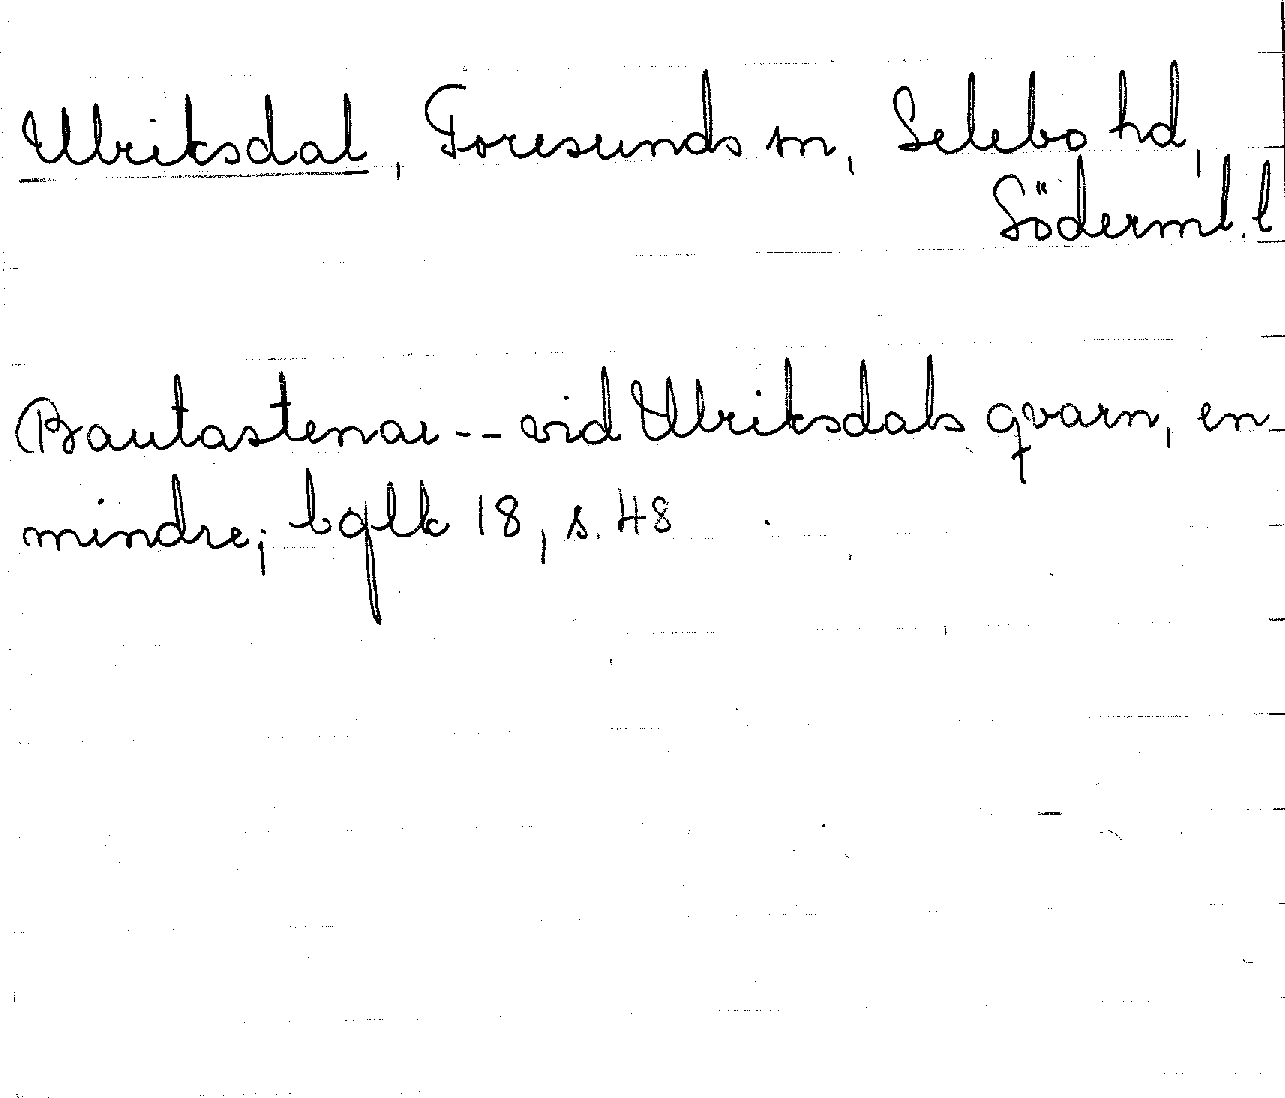 Ulriksdal, Toresunds sn, Selebo hd,
Söderml. l
Bautastenar -- vid Ulriksdals qvarn, en
mindre; bglk 18, s. 48